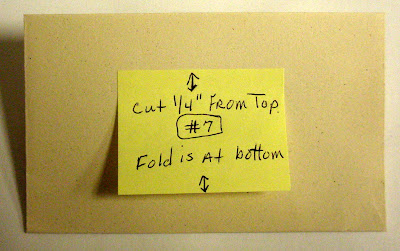 Cut 1/4" From Top.
#7
Fold is At bottom